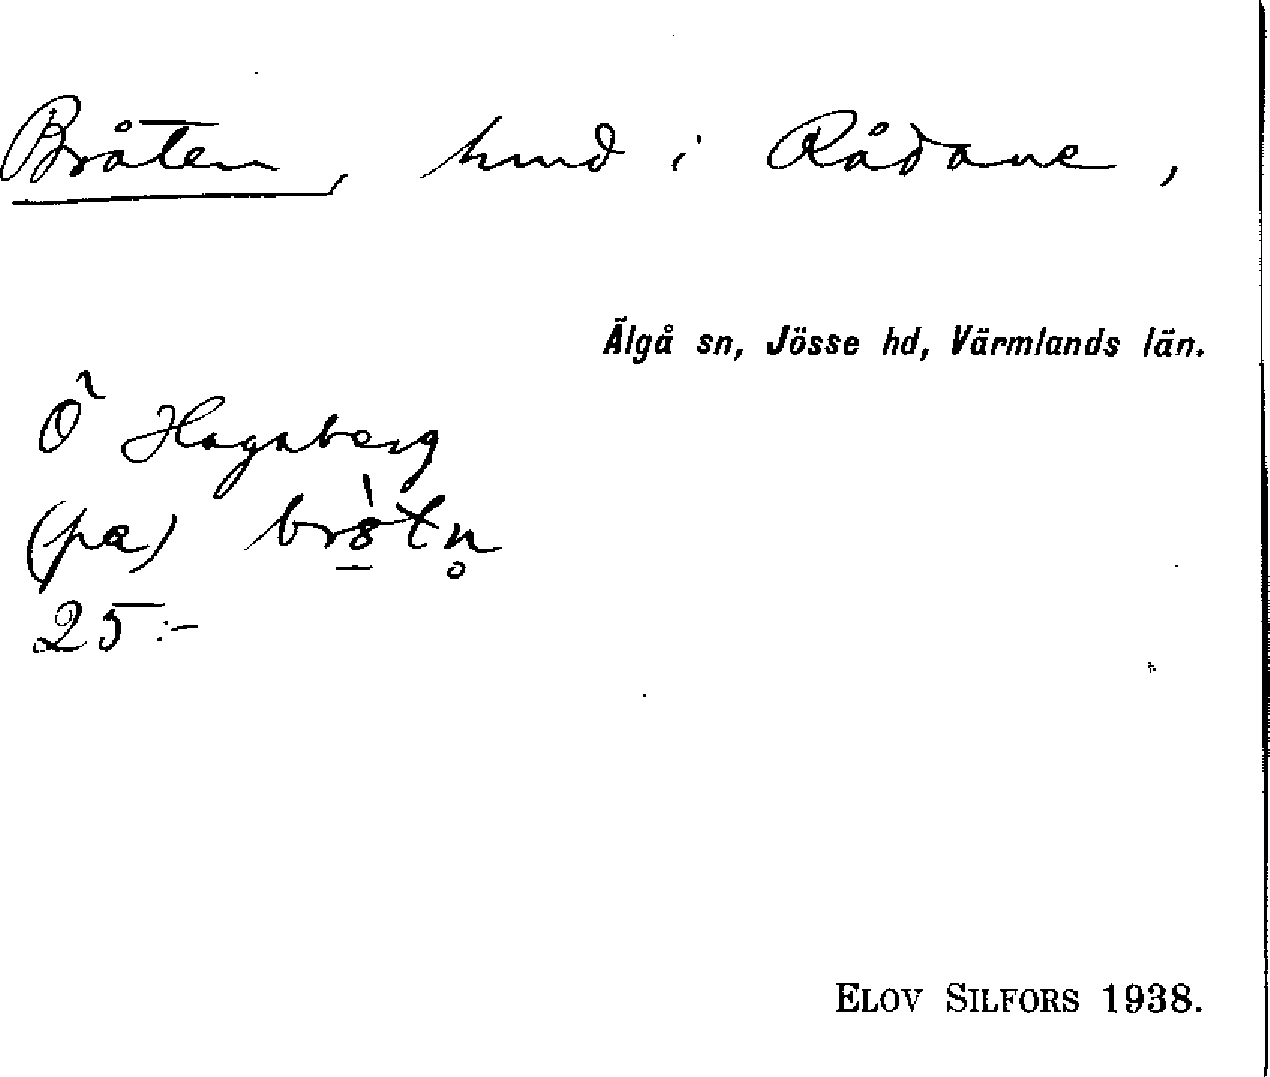 Bråten, hmd i Rådane,
Älgå sn, Jösse hd, Värmlands län.
Ö Hagaberg
(pa)
25:-
ELOV SILFORS 1938.